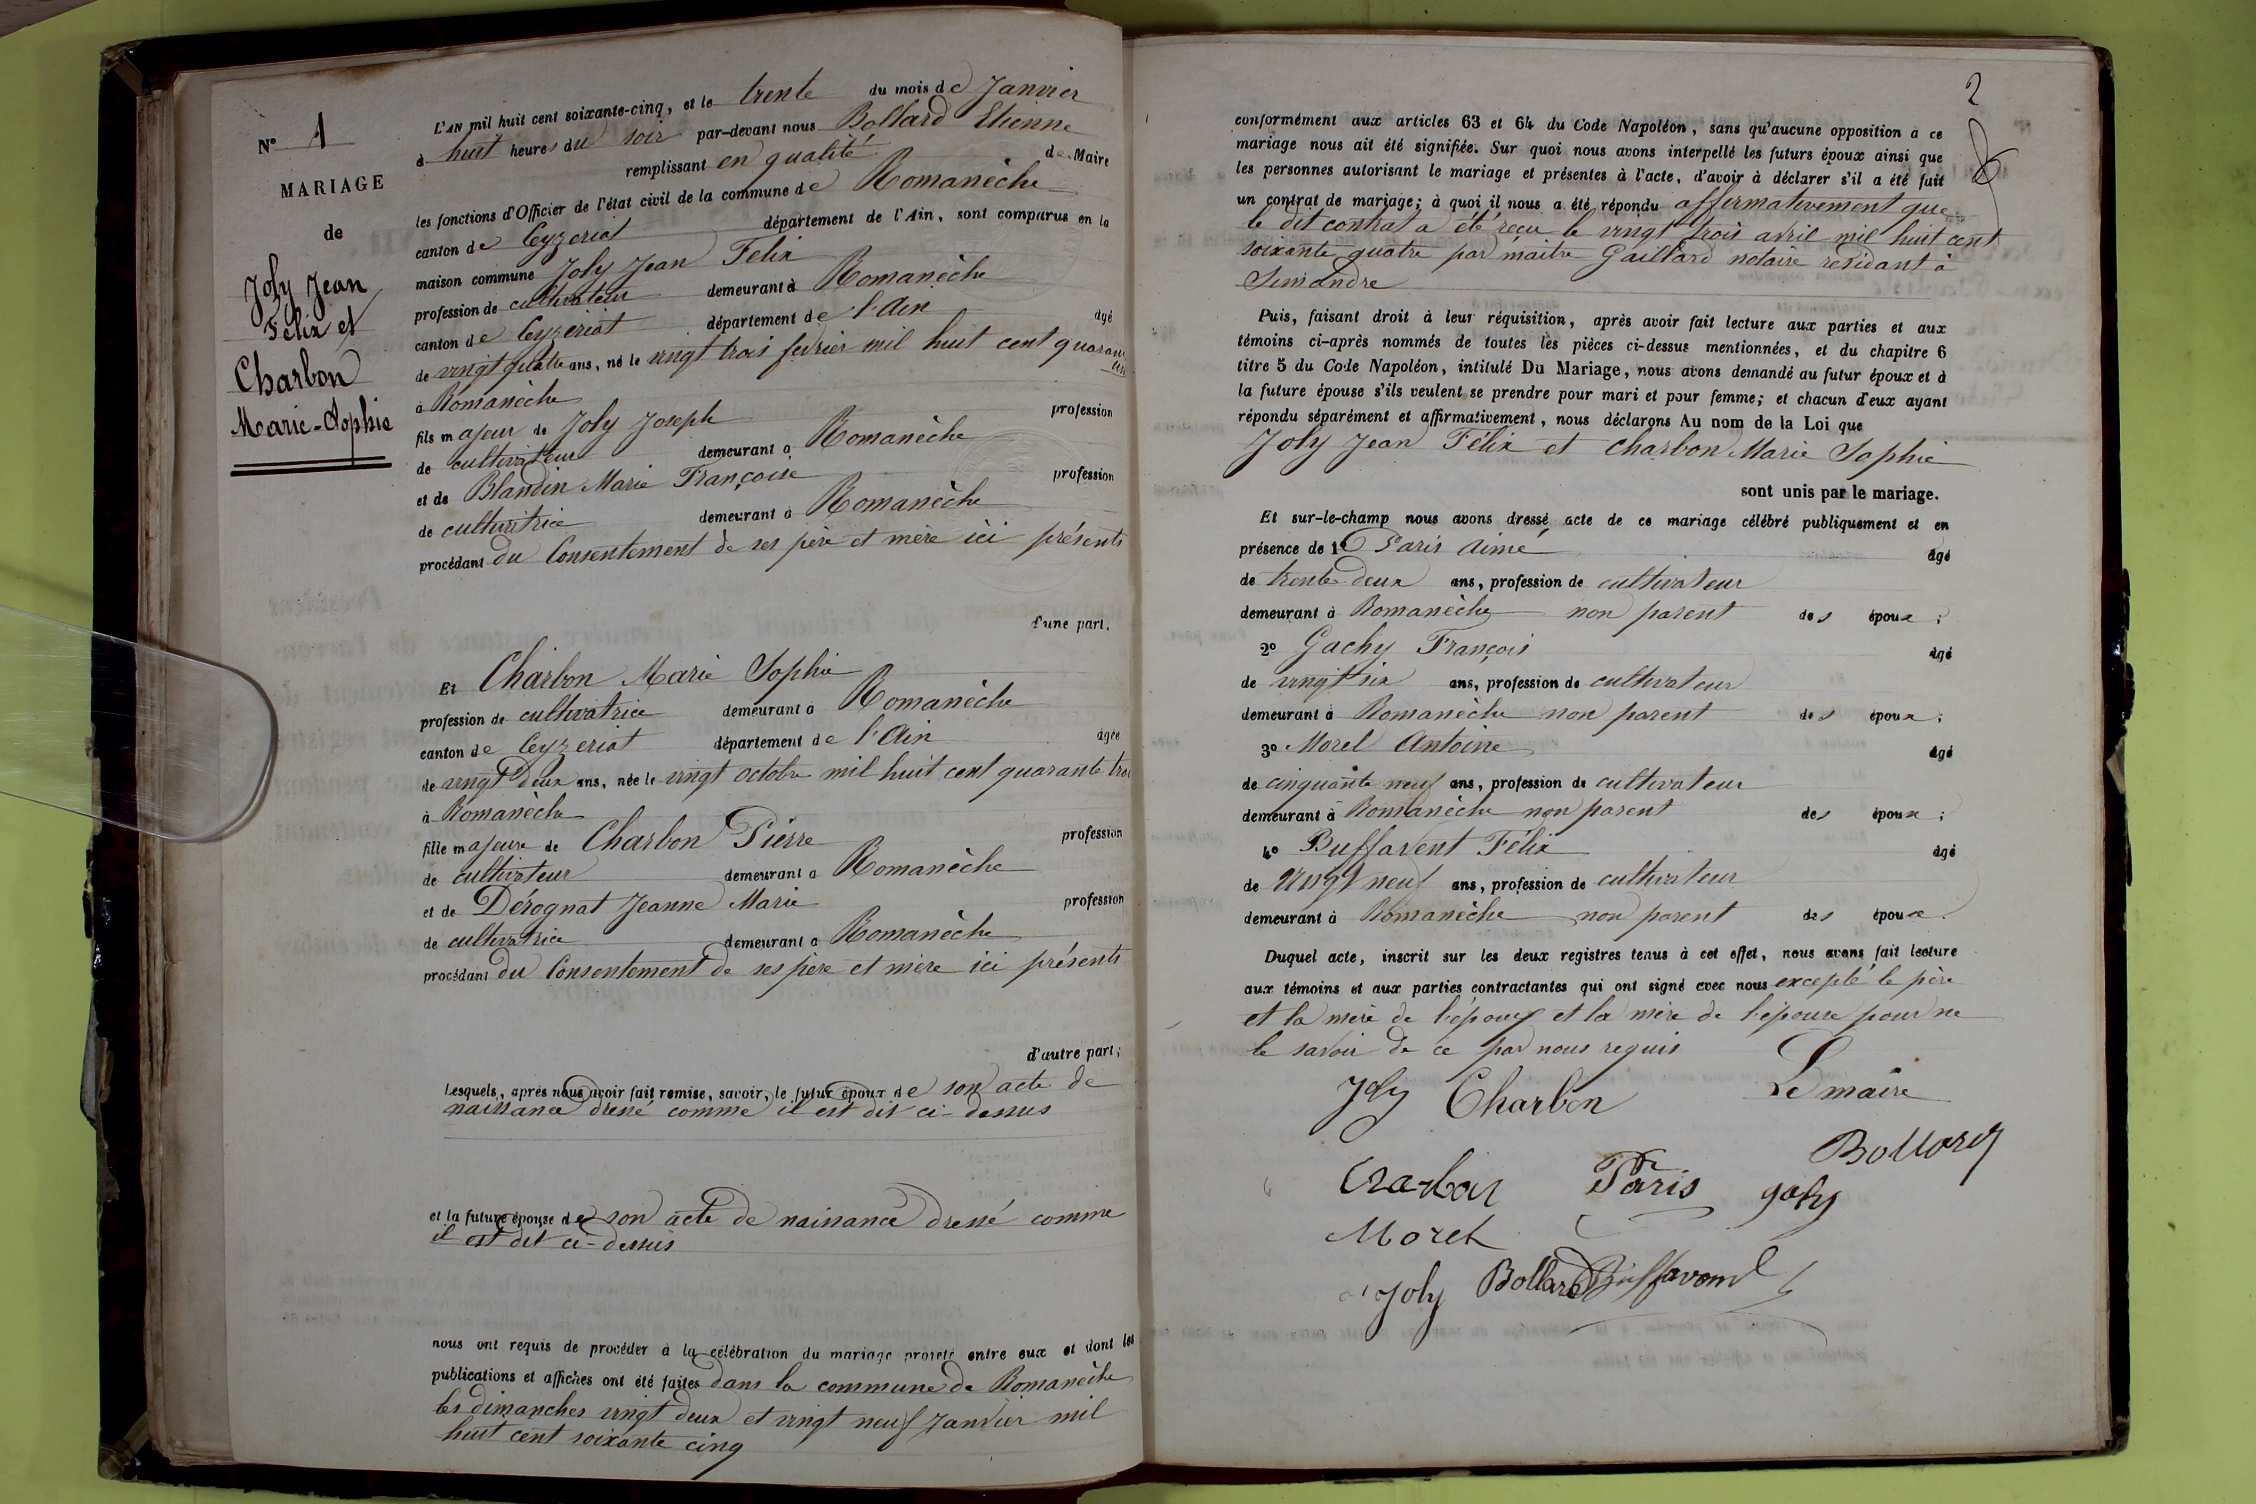 N° 1
MARIAGE
de
Joly Jean
Félix et
Charbon
Marie-Sophie
L'AN mil huit cent soixante-cinq, et le trente du mois de Janvier
à huit heures du soir par-devant nous Bollard Etienne
remplissant en qualité de Maire
les fonctions d'Officier de l'état civil de la commune de Romanèche
canton de Ceyzeriat département de l'Ain, sont comparus en la
maison commune Joly Jean Felix
profession de cultivateur demeurant à Romanèche
canton de Ceyzeriat département de l'Ain âgé
de vingt quatre ans, né le vingt trois fevrier mil huit cent quarante
un
à Romanèche
fils majeur de Joly Joseph profession
de cultivateur demeurant à Romanèche
et de Blandin Marie Françoise profession
de cultivatrice demeurant à Romanèche
procédant du Consentement de ses père et mère ici présents
d'une part.
Et Charbon Marie Sophie
profession de cultivatrice demeurant à Romanèche
canton de Ceyzeriat département de l'Ain âgée
de vingt deux ans, née le vingt octobre mil huit cent quarante trois
à Romanèche
fille majeure de Charbon Pierre profession
de cultivateur demeurant à Romanèche
et de Dérognat Jeanne Marie profession
de cultivatrice demeurant à Romanèche
procédant du Consentement de ses père et mère ici présents
d'autre part;
Lesquels, après nous avoir fait remise, savoir, le futur époux de son acte de
naissance dressé comme il est dit ci-dessus
et la future épouse de son acte de naissance dressé comme
il est dit ci-dessus
nous ont requis de procéder à la célébration du mariage projeté entre eux et dont les
publications et affiches ont été faites dans la commune de Romanèche
les dimanches vingt deux et vingt neuf Janvier mil
huit cent soixante cinq
2
conformément aux articles 63 et 64 du Code Napoléon, sans qu'aucune opposition à ce
mariage nous ait été signifiée. Sur quoi nous avons interpellé les futurs époux ainsi que
les personnes autorisant le mariage et présentes à l'acte, d'avoir à déclarer s'il a été fait
un contrat de mariage; à quoi il nous a été répondu affirmativement que
le dit contrat a été reçu le vingt trois avril mil huit cent
soixante quatre par maitre Gaillard notaire residant à
Simandre
Puis, faisant droit à leur réquisition, après avoir fait lecture aux parties et aux
témoins ci-après nommés de toutes les pièces ci-dessus mentionnées, et du chapitre 6
titre 5 du Code Napoléon, intitulé Du Mariage, nous avons demandé au futur époux et à
la future épouse s'ils veulent se prendre pour mari et pour femme; et chacun d'eux ayant
répondu séparément et affirmativement, nous déclarons Au nom de la Loi que
Joly Jean Félix et Charbon Marie Sophie
sont unis par le mariage.
Et sur-le-champ nous avons dressé acte de ce mariage célébré publiquement et en
présence de 1° Paris Aimé âgé
de trente deux ans, profession de cultivateur
demeurant à Romanèche non parent des époux;
2° Gachy François âgé
de vingt six ans, profession de cultivateur
demeurant à Romanèche non parent des époux;
3° Morel Antoine âgé
de cinquante neuf ans, profession de cultivateur
demeurant à Romanèche non parent des époux;
4° Buffavent Félix âgé
de vingt neuf ans, profession de cultivateur
demeurant à Romanèche non parent des époux.
Duquel acte, inscrit sur les deux registres tenus à cet effet, nous avons fait lecture
aux témoins et aux parties contractantes qui ont signé avec nous excepté le père
et la mère de l'époux et la mère de l'épouse pour ne
le savoir de ce par nous requis
Joly Charbon Le maire
Bollard
Paris
Morel
Joly Bollard